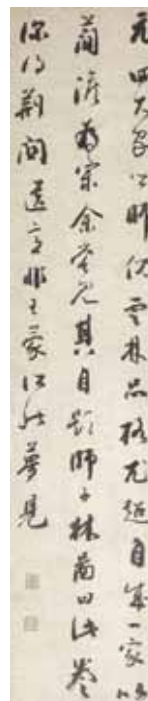 元四大家以師倪雲林品格尤超自成一家以
蕭澹為宗余嘗見其自題師子林圖曰此卷
深得荊關遺意非王蒙所能夢見